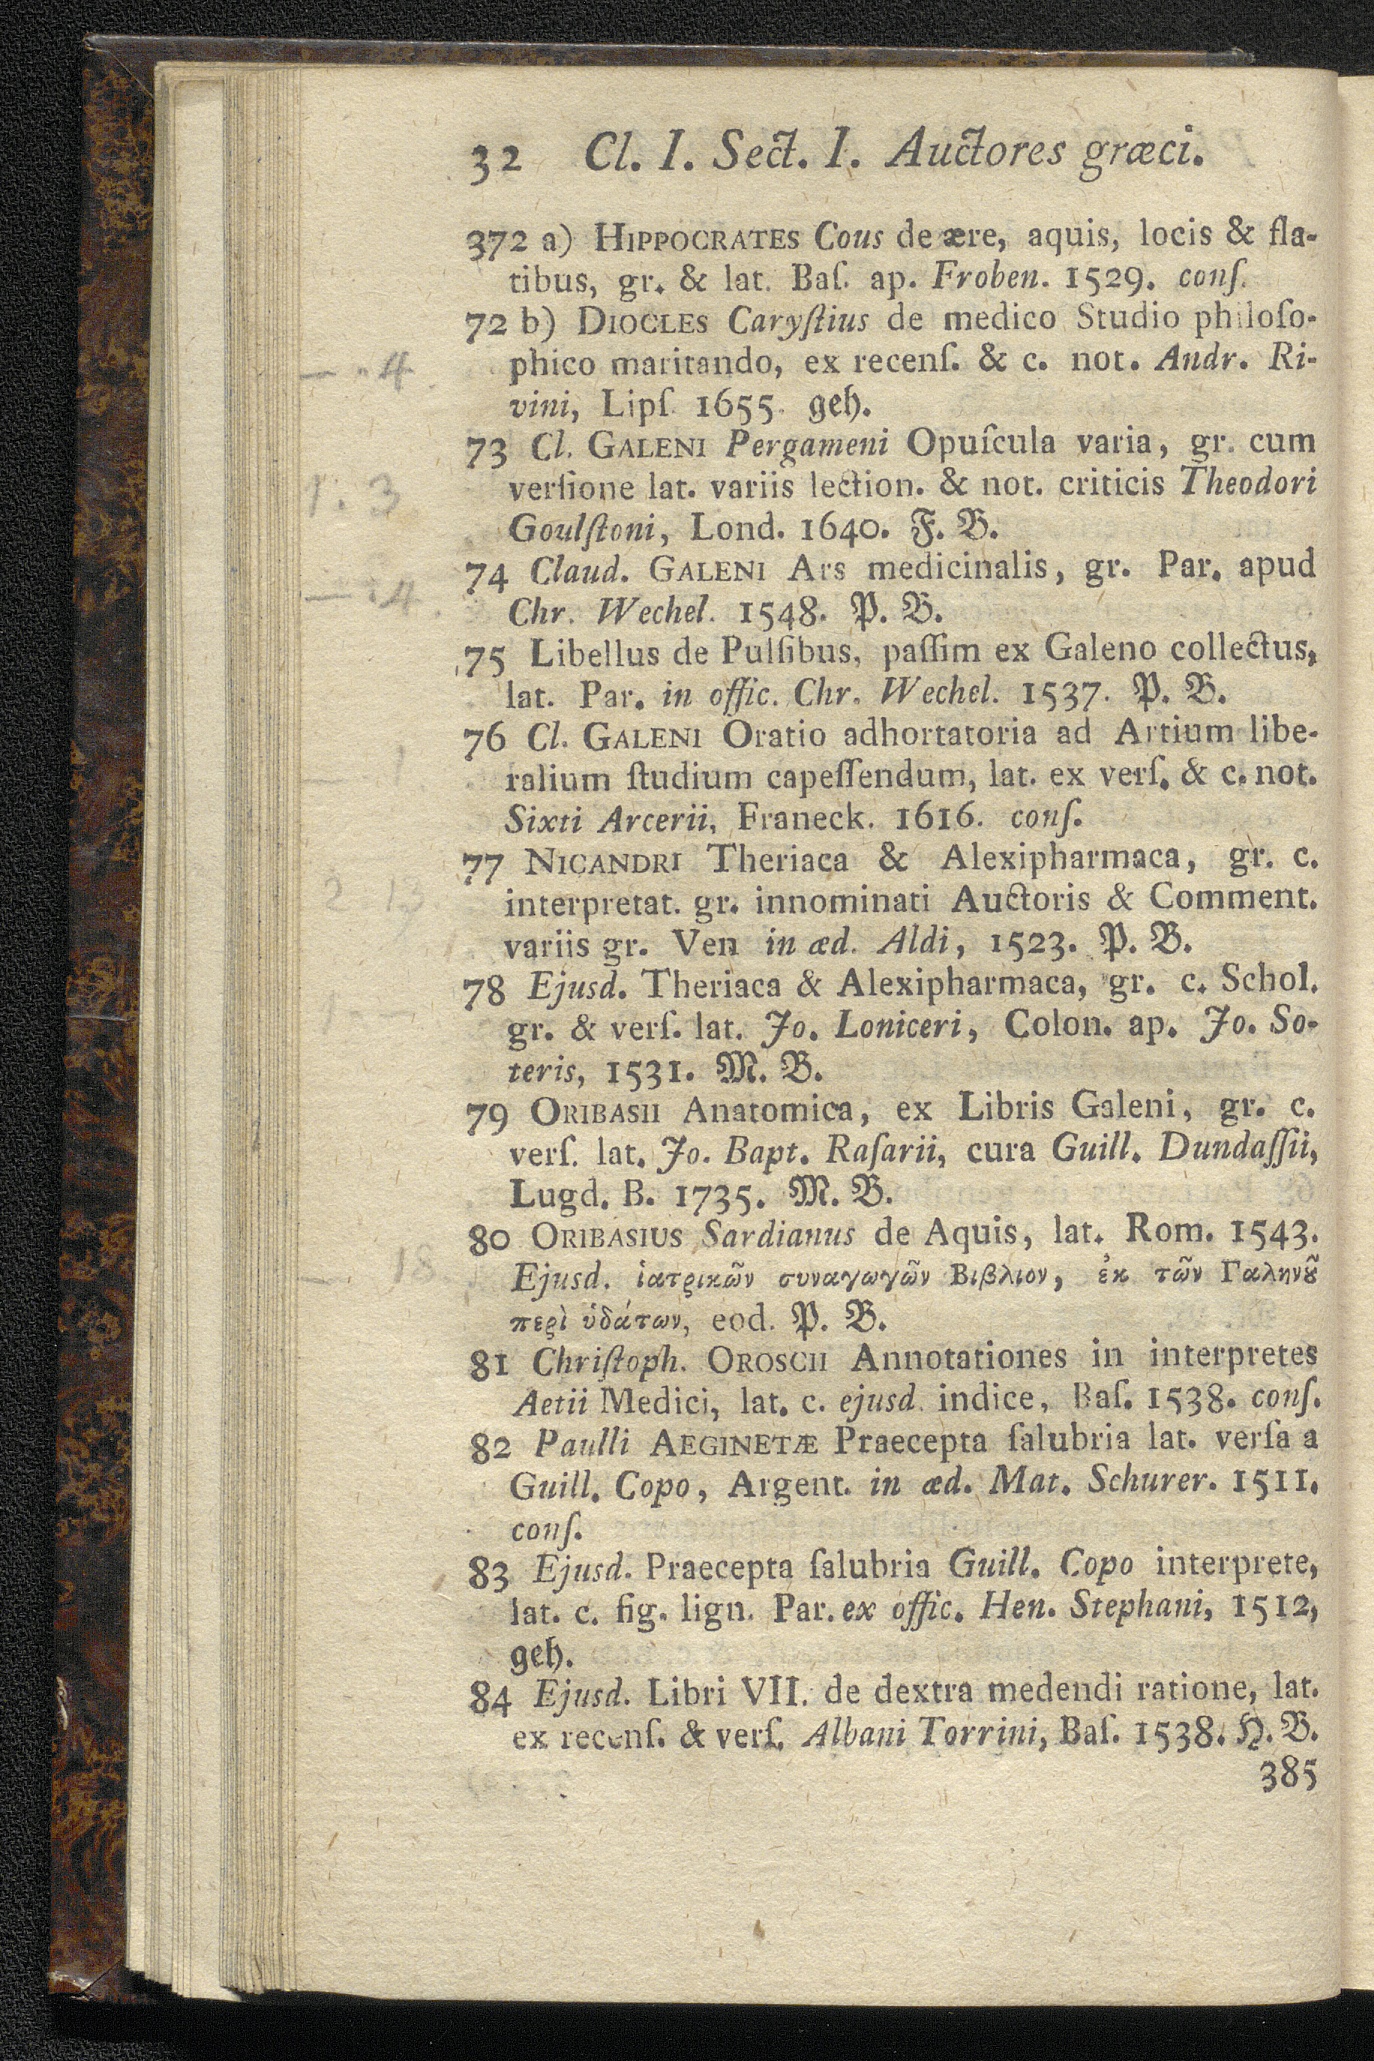 32 Cl. I. Sect. I. Auctores græci.
372 a) HIPPOCRATES Cous de ære, aquis, locis & fla-
tibus, gr. & lat. Baſ. ap. Froben. 1529. conſ.
72 b) DIOCLES Caryſtius de medico Studio philoſo-
phico maritando, ex recenſ. & c. not. Andr. Ri-
— . 4
vini, Lipſ. 1655. geh.
73 Cl. GALENI Pergameni Opuſcula varia, gr. cum
verſione lat. variis lection. & not. criticis Theodori
1. 3
Goulſtoni, Lond. 1640. F. B.
74 Claud. GALENI Ars medicinalis, gr. Par. apud
— . 4.
Chr. Wechel. 1548. P. B.
75 Libellus de Pulſibus, paſſim ex Galeno collectus,
lat. Par. in offic. Chr. Wechel. 1537. P. B.
76 Cl. GALENI Oratio adhortatoria ad Artium libe-
ralium ſtudium capeſſendum, lat. ex verſ. & c. not.
Sixti Arcerii, Franeck. 1616. conſ.
77 NICANDRI Theriaca & Alexipharmaca, gr. c.
interpretat. gr. innominati Auctoris & Comment.
variis gr. Ven in æd. Aldi, 1523. P. B.
78 Ejusd. Theriaca & Alexipharmaca, gr. c. Schol.
gr. & verſ. lat. Jo. Loniceri, Colon. ap. Jo. So-
teris, 1531. M. B.
79 ORIBASII Anatomica, ex Libris Galeni, gr. c.
verſ. lat. Jo. Bapt. Raſarii, cura Guill. Dundaſſii,
Lugd. B. 1735. M. B.
80 ORIBASIUS Sardianus de Aquis, lat. Rom. 1543.
— 18.
Ejusd. ἰατρικῶν συναγωγῶν Βιβλιον, ἐκ τῶν Γαληνȣ͂
περὶ ὑδάτων, eod. P. B.
81 Chriſtoph. OROSCII Annotationes in interpretes
Aetii Medici, lat. c. ejusd. indice, Baſ. 1538. conſ.
82 Paulli AEGINETÆ Praecepta ſalubria lat. verſa a
Guill. Copo, Argent. in æd. Mat. Schurer. 1511.
conſ.
83 Ejusd. Praecepta ſalubria Guill. Copo interprete,
lat. c. fig. lign. Par. ex offic. Hen. Stephani, 1512,
geh.
84 Ejusd. Libri VII. de dextra medendi ratione, lat.
ex recenſ. & verſ. Albani Torrini, Baſ. 1538. H. B.
385